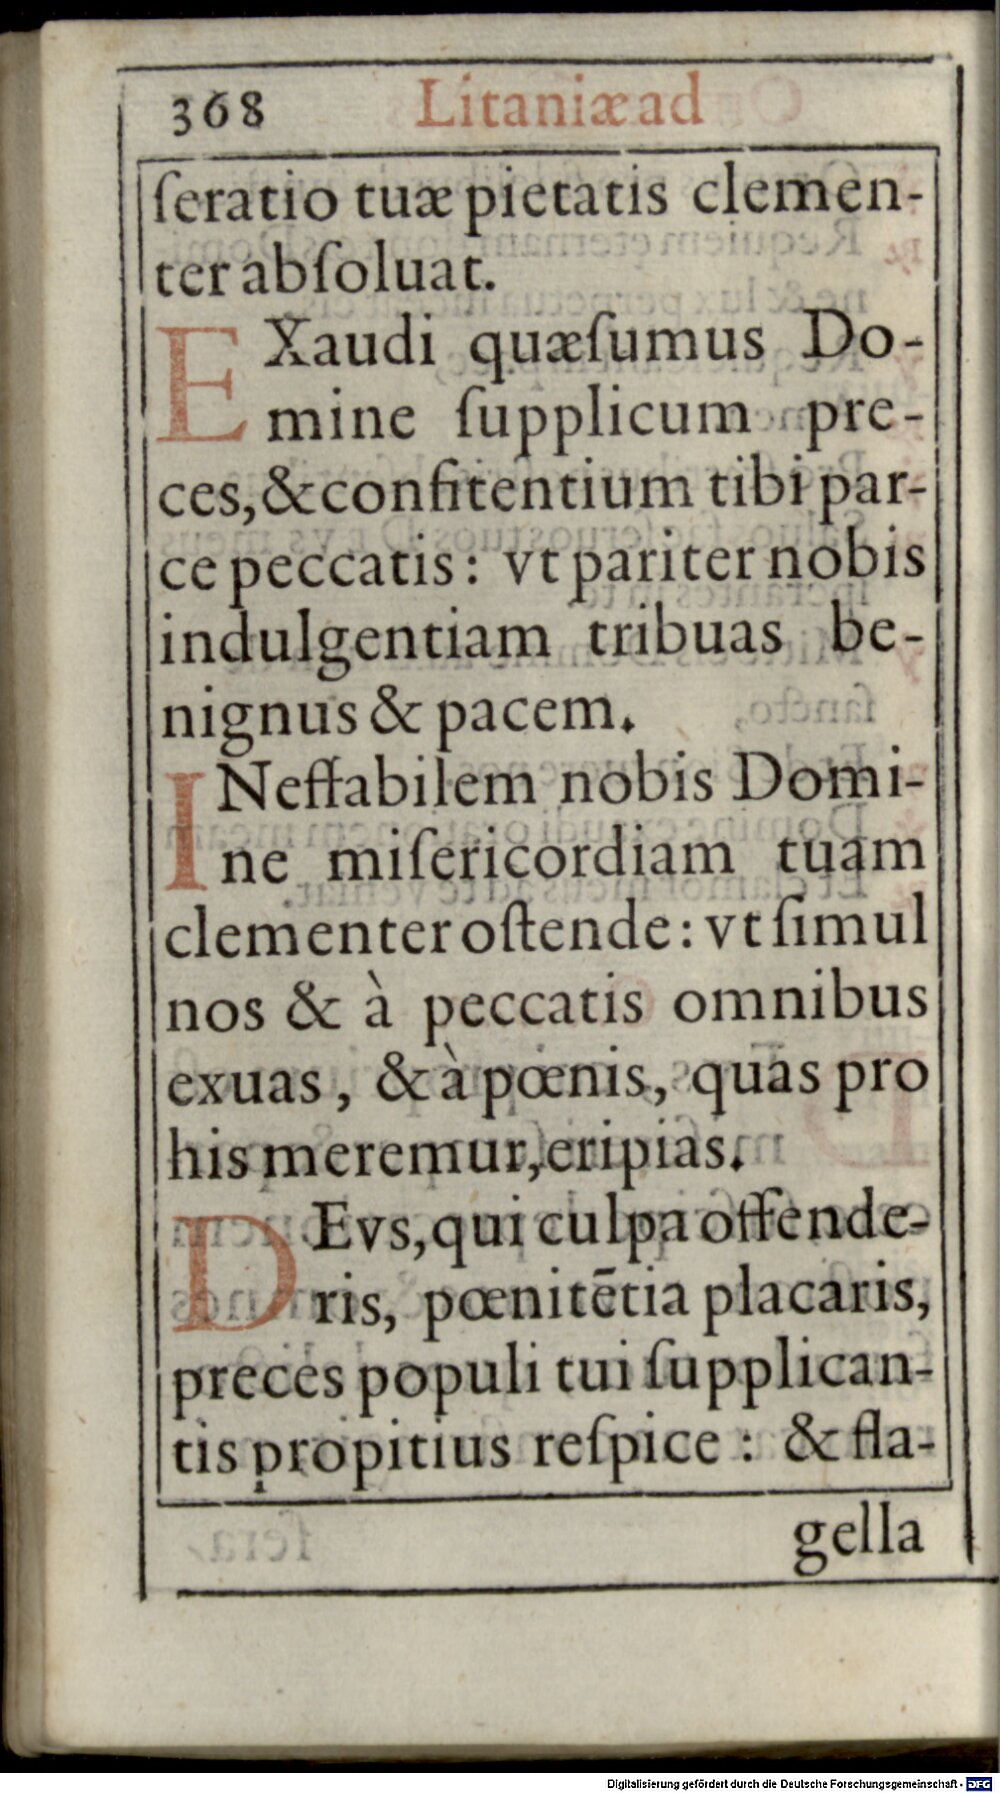 368 Litaniæ ad
ſeratio tuæ pietatis clemen-
ter abſoluat.
EXaudi quæſumus Do-
mine ſupplicum pre-
ces, & confitentium tibi par-
ce peccatis: vt pariter nobis
indulgentiam tribuas be-
nignus & pacem.
INeffabilem nobis Domi-
ne miſericordiam tuam
clementer oſtende: vt ſimul
nos & à peccatis omnibus
exuas, & à pœnis, quas pro
his meremur, eripias.
DEvs, qui culpa offende-
ris, pœnitētia placaris,
preces populi tui ſupplican-
tis propitius reſpice: & fla-
gella
Digitalisierung gefördert durch die Deutsche Forschungsgemeinschaft - DFG